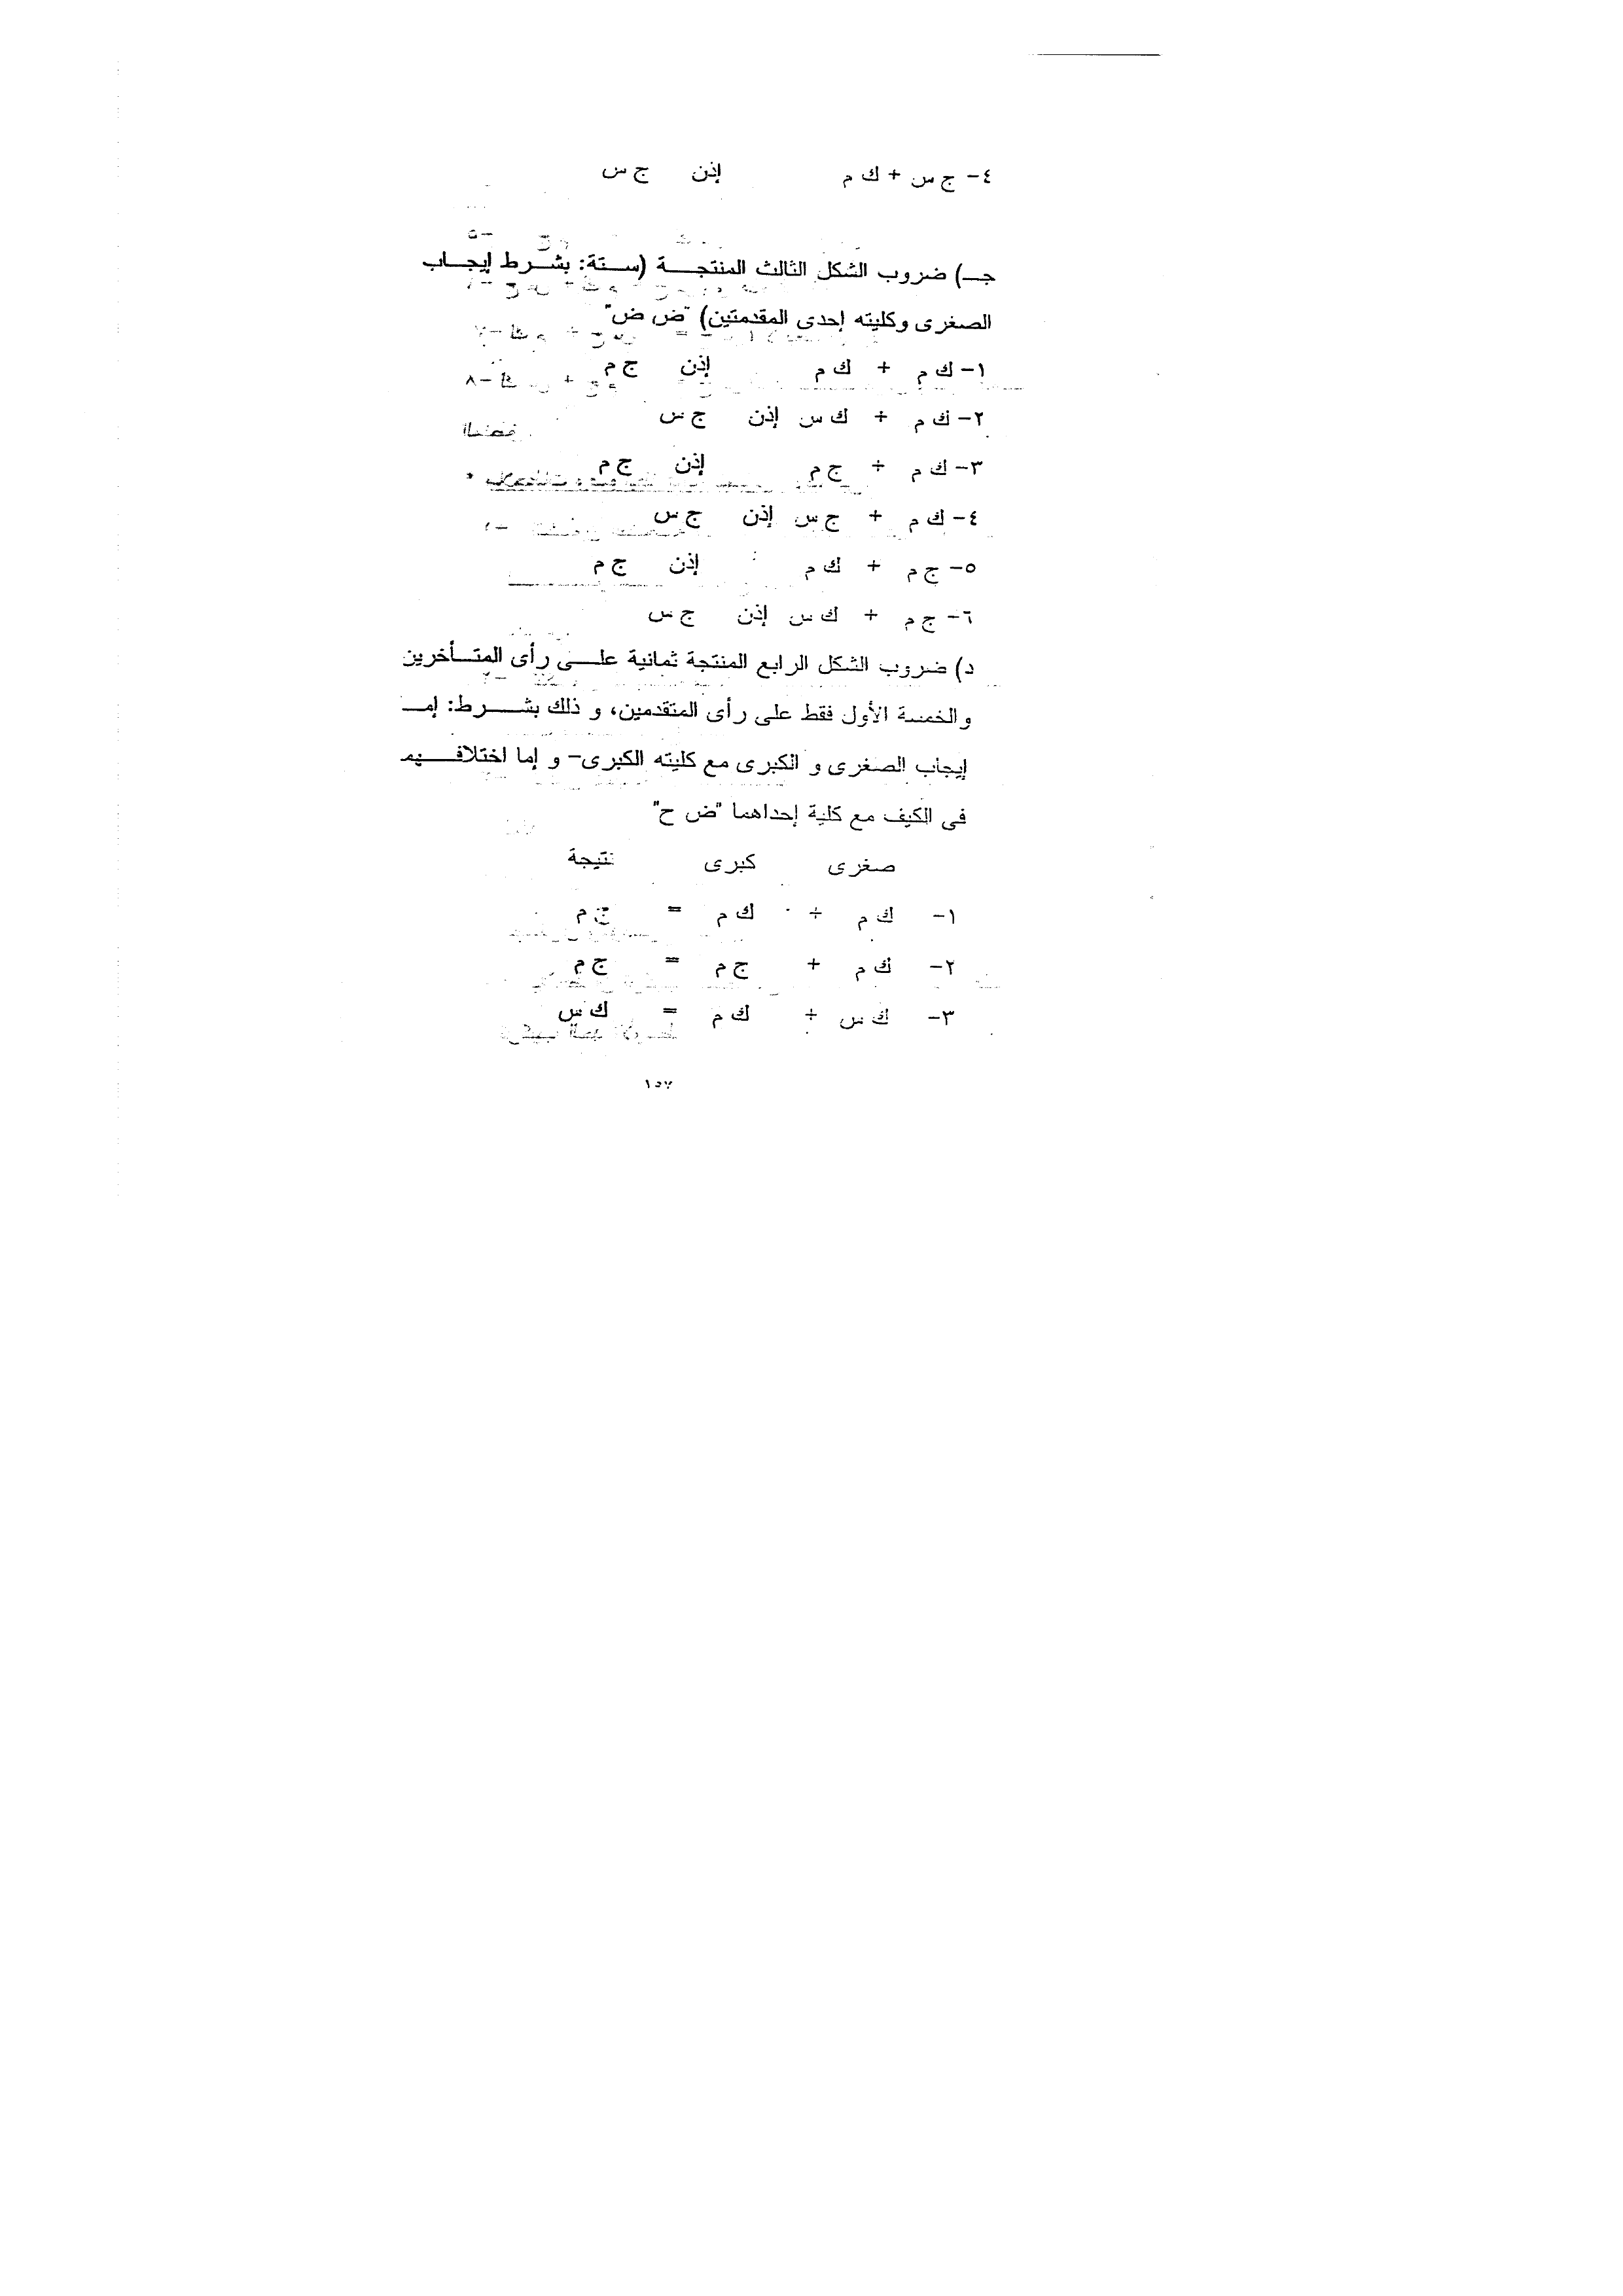 ٤- ج س + ك م إذن ج س
جـ) ضروب الشكل الثالث المنتجـــة (ســتة: بشــرط إيجــاب
الصغرى وكليته إحدى المقدمتين) "ض ض"
١- ك م + ك م إذن ج م
٢- ك م + ك س إذن ج س
٣- ك م + ج م إذن ج م
٤- ك م + ج س إذن ج س
٥- ج م + ك م إذن ج م
٦- ج م + ك س إذن ج س
د) ضروب الشكل الرابع المنتجة ثمانية علـــى رأى المتــأخرين
والخمسة الأول فقط على رأى المتقدمين، و ذلك بشـــرط: إمــ
إيجاب الصغرى و الكبرى مع كليته الكبرى- و إما اختلافــهم
فى الكيف مع كلية إحداهما "ض ح"
صغرى كبرى نتيجة
١- ك م + ك م = ج م
٢- ك م + ج م = ج م
٣- ك س + ك م = ك س
١٥٧